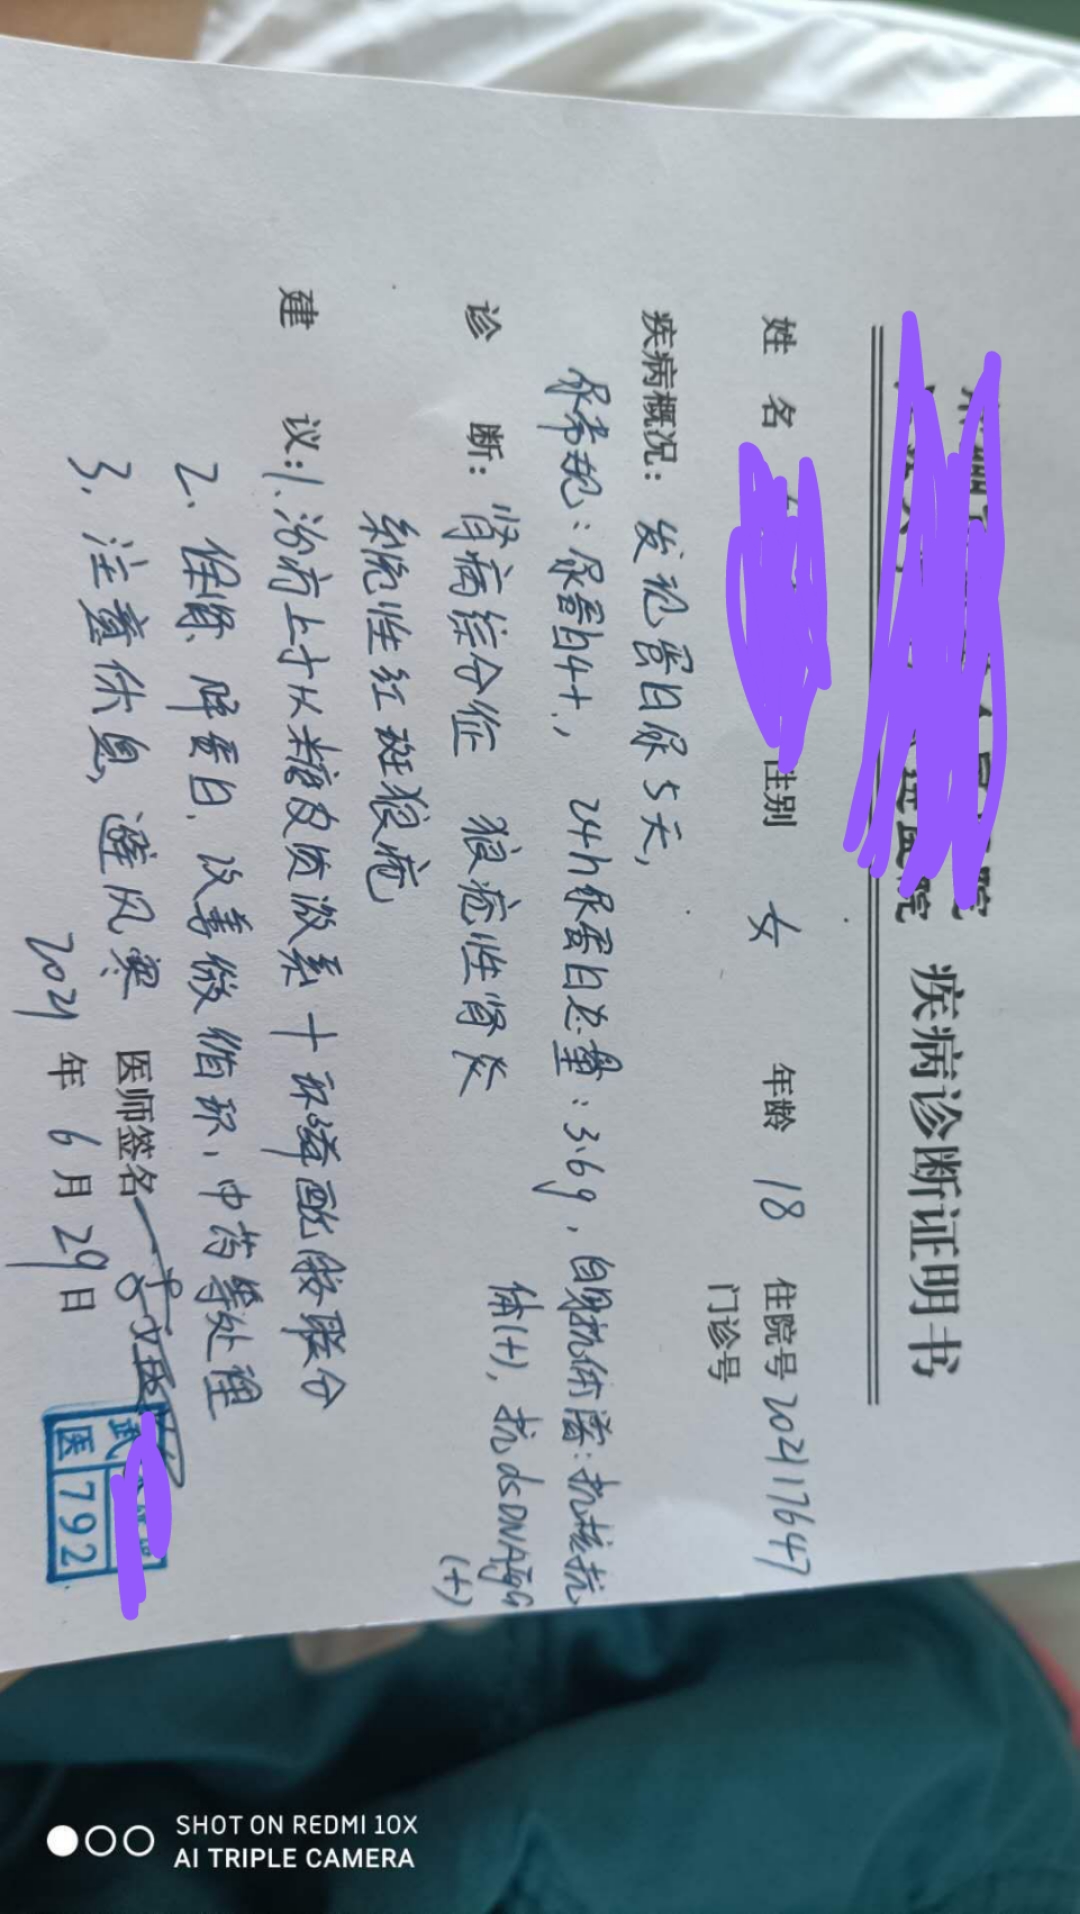 疾病诊断证明书
姓 名 性别 女 年龄 18 住院号 202117647
门诊号
疾病概况: 发现蛋白尿5天,
尿常规:尿蛋白4+, 24h尿蛋白总量:3.6g,自身抗体谱:抗核抗
体(+),抗dsDNAIgG
(+)
诊 断: 肾病综合征 狼疮性肾炎
系统性红斑狼疮
建 议:1、治疗上予以糖皮质激素+环磷酰胺联合
2、保肾、降蛋白、改善微循环、中药等处理
3、注意休息,避风寒
医师签名
2021 年 6 月 29 日
武
医 792
SHOT ON REDMI 10X
AI TRIPLE CAMERA